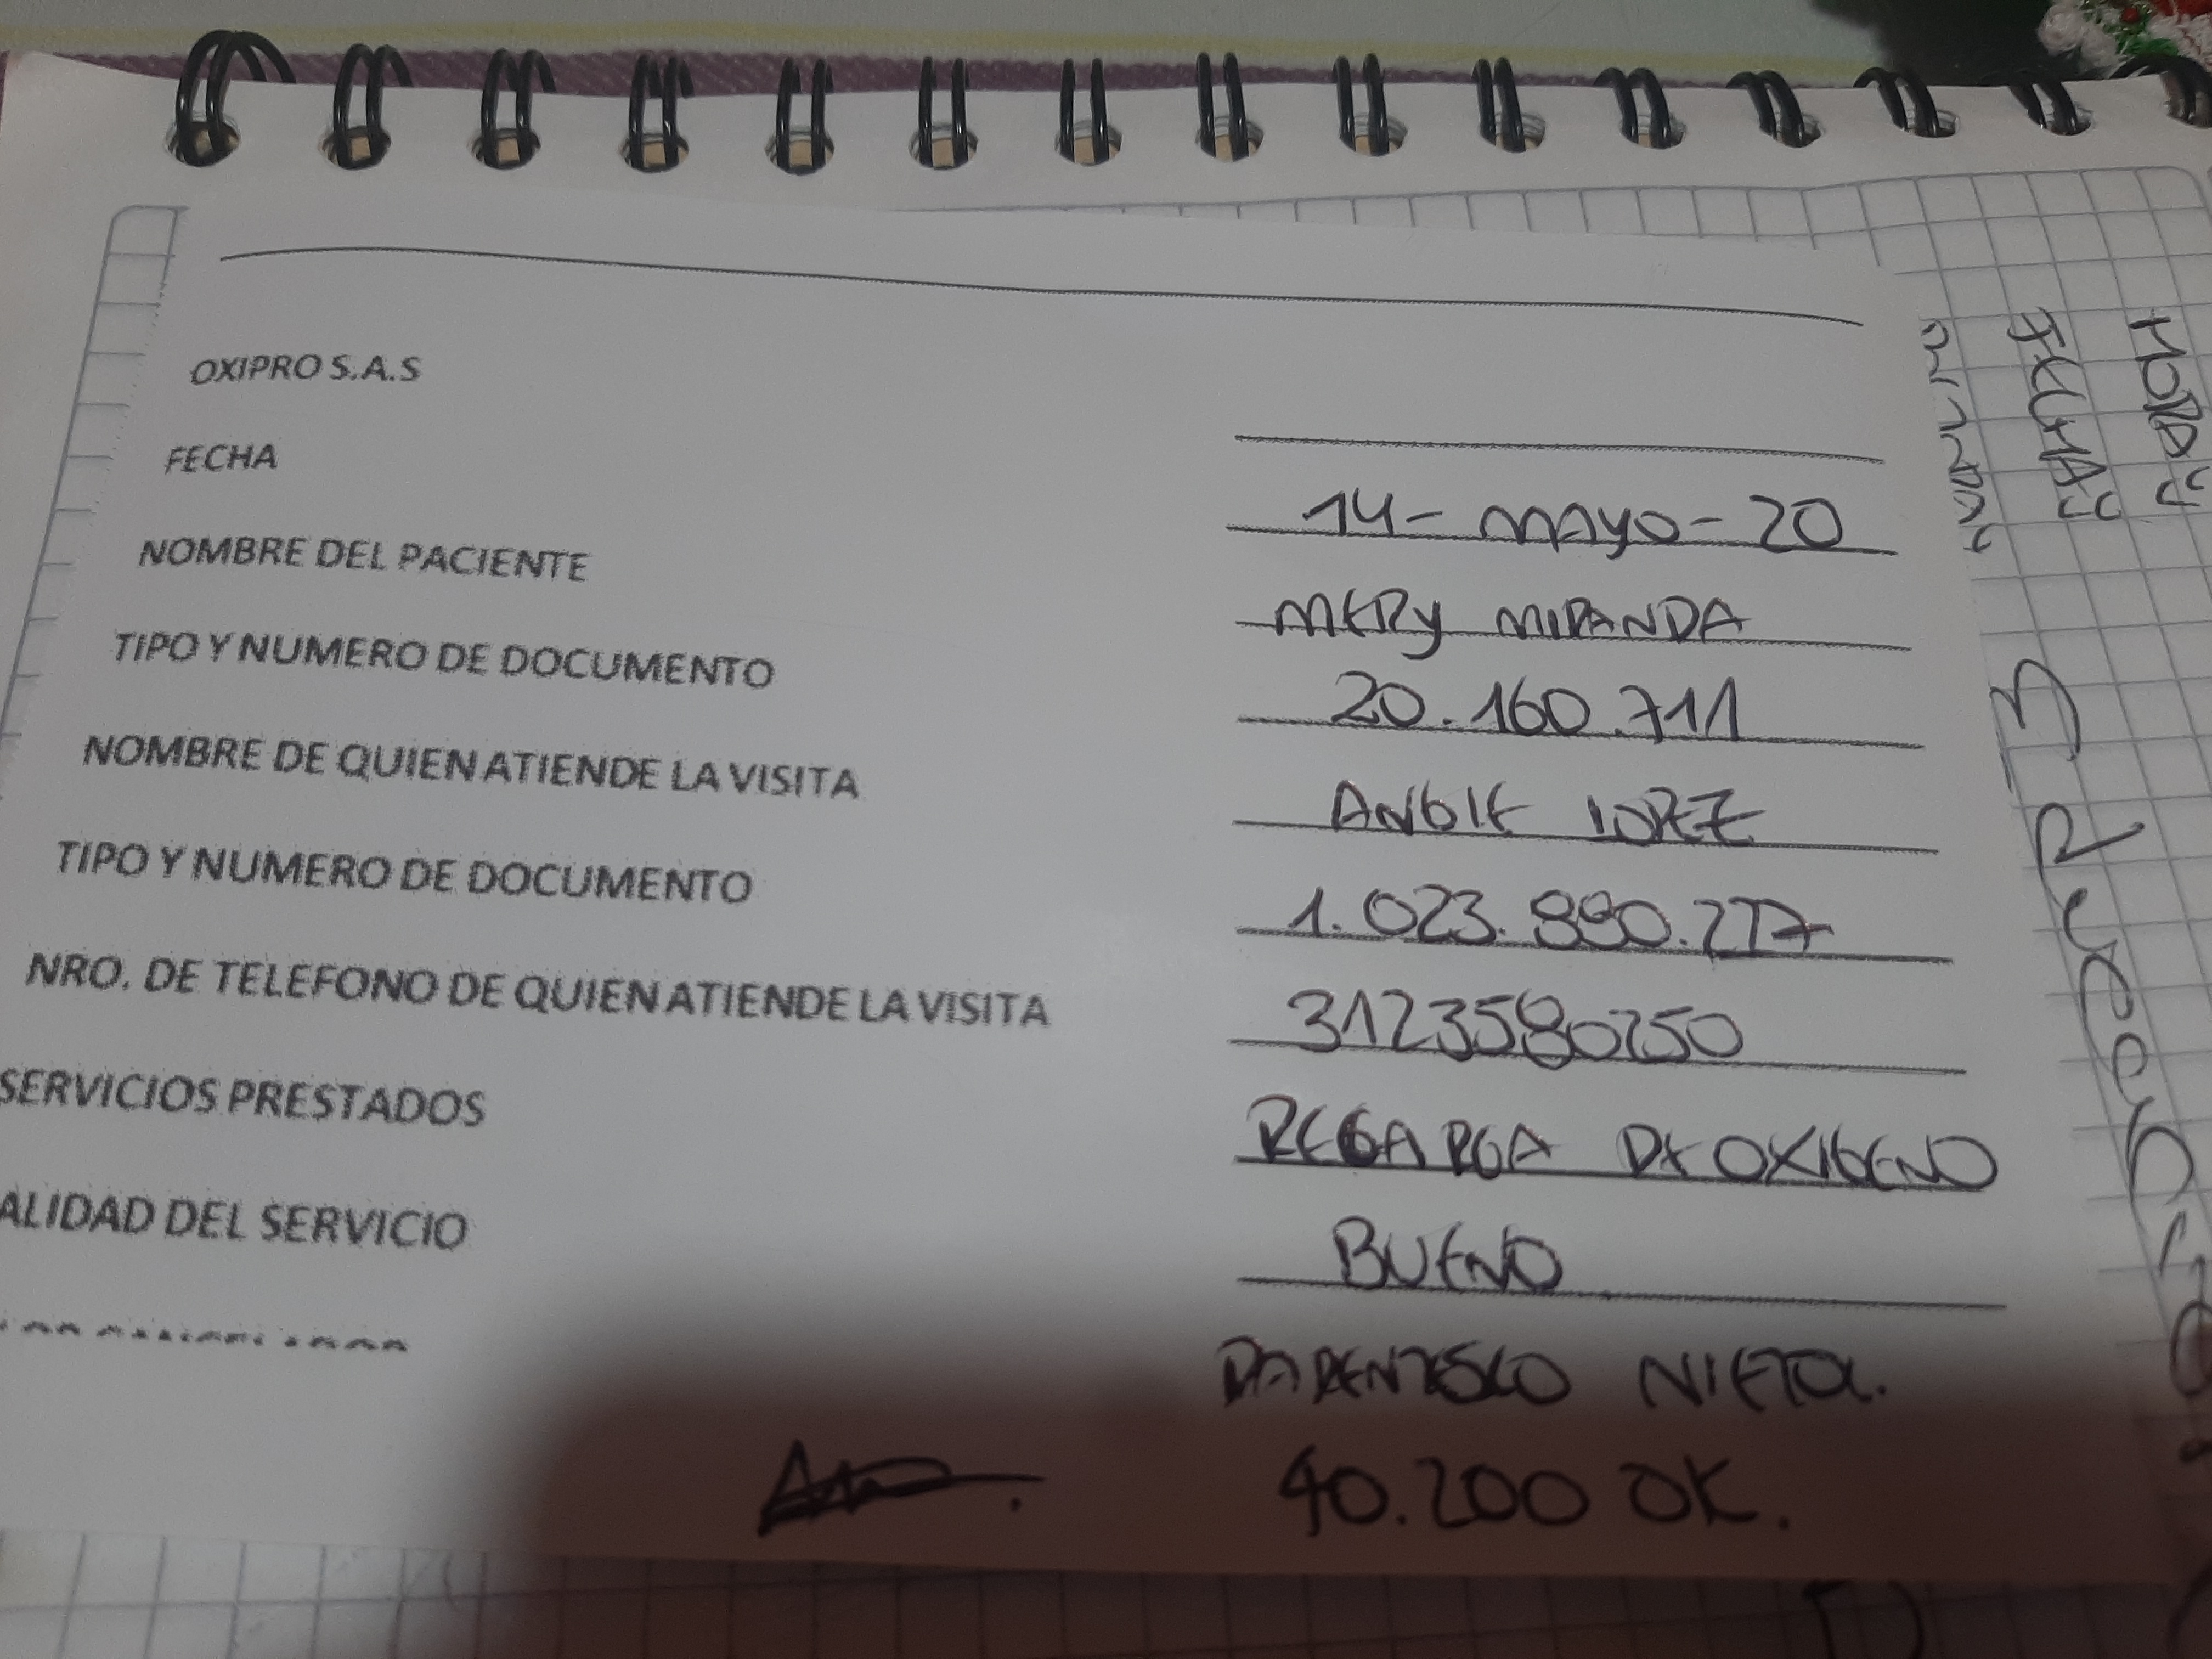 OXIPRO S.A.S
FECHA 14- MAYO-20
NOMBRE DEL PACIENTE MERY MIRANDA
TIPO Y NUMERO DE DOCUMENTO 20.160.711
NOMBRE DE QUIEN ATIENDE LA VISITA ANGIE LOPEZ
TIPO Y NUMERO DE DOCUMENTO 1.023.
NRO. DE TELEFONO DE QUIEN ATIENDE LA VISITA 3123580250
SERVICIOS PRESTADOS RECARGA DE OXIGENO
ALIDAD DEL SERVICIO BUENO
PARENTESCO NIETA.
40.200 OK.
FECHA: